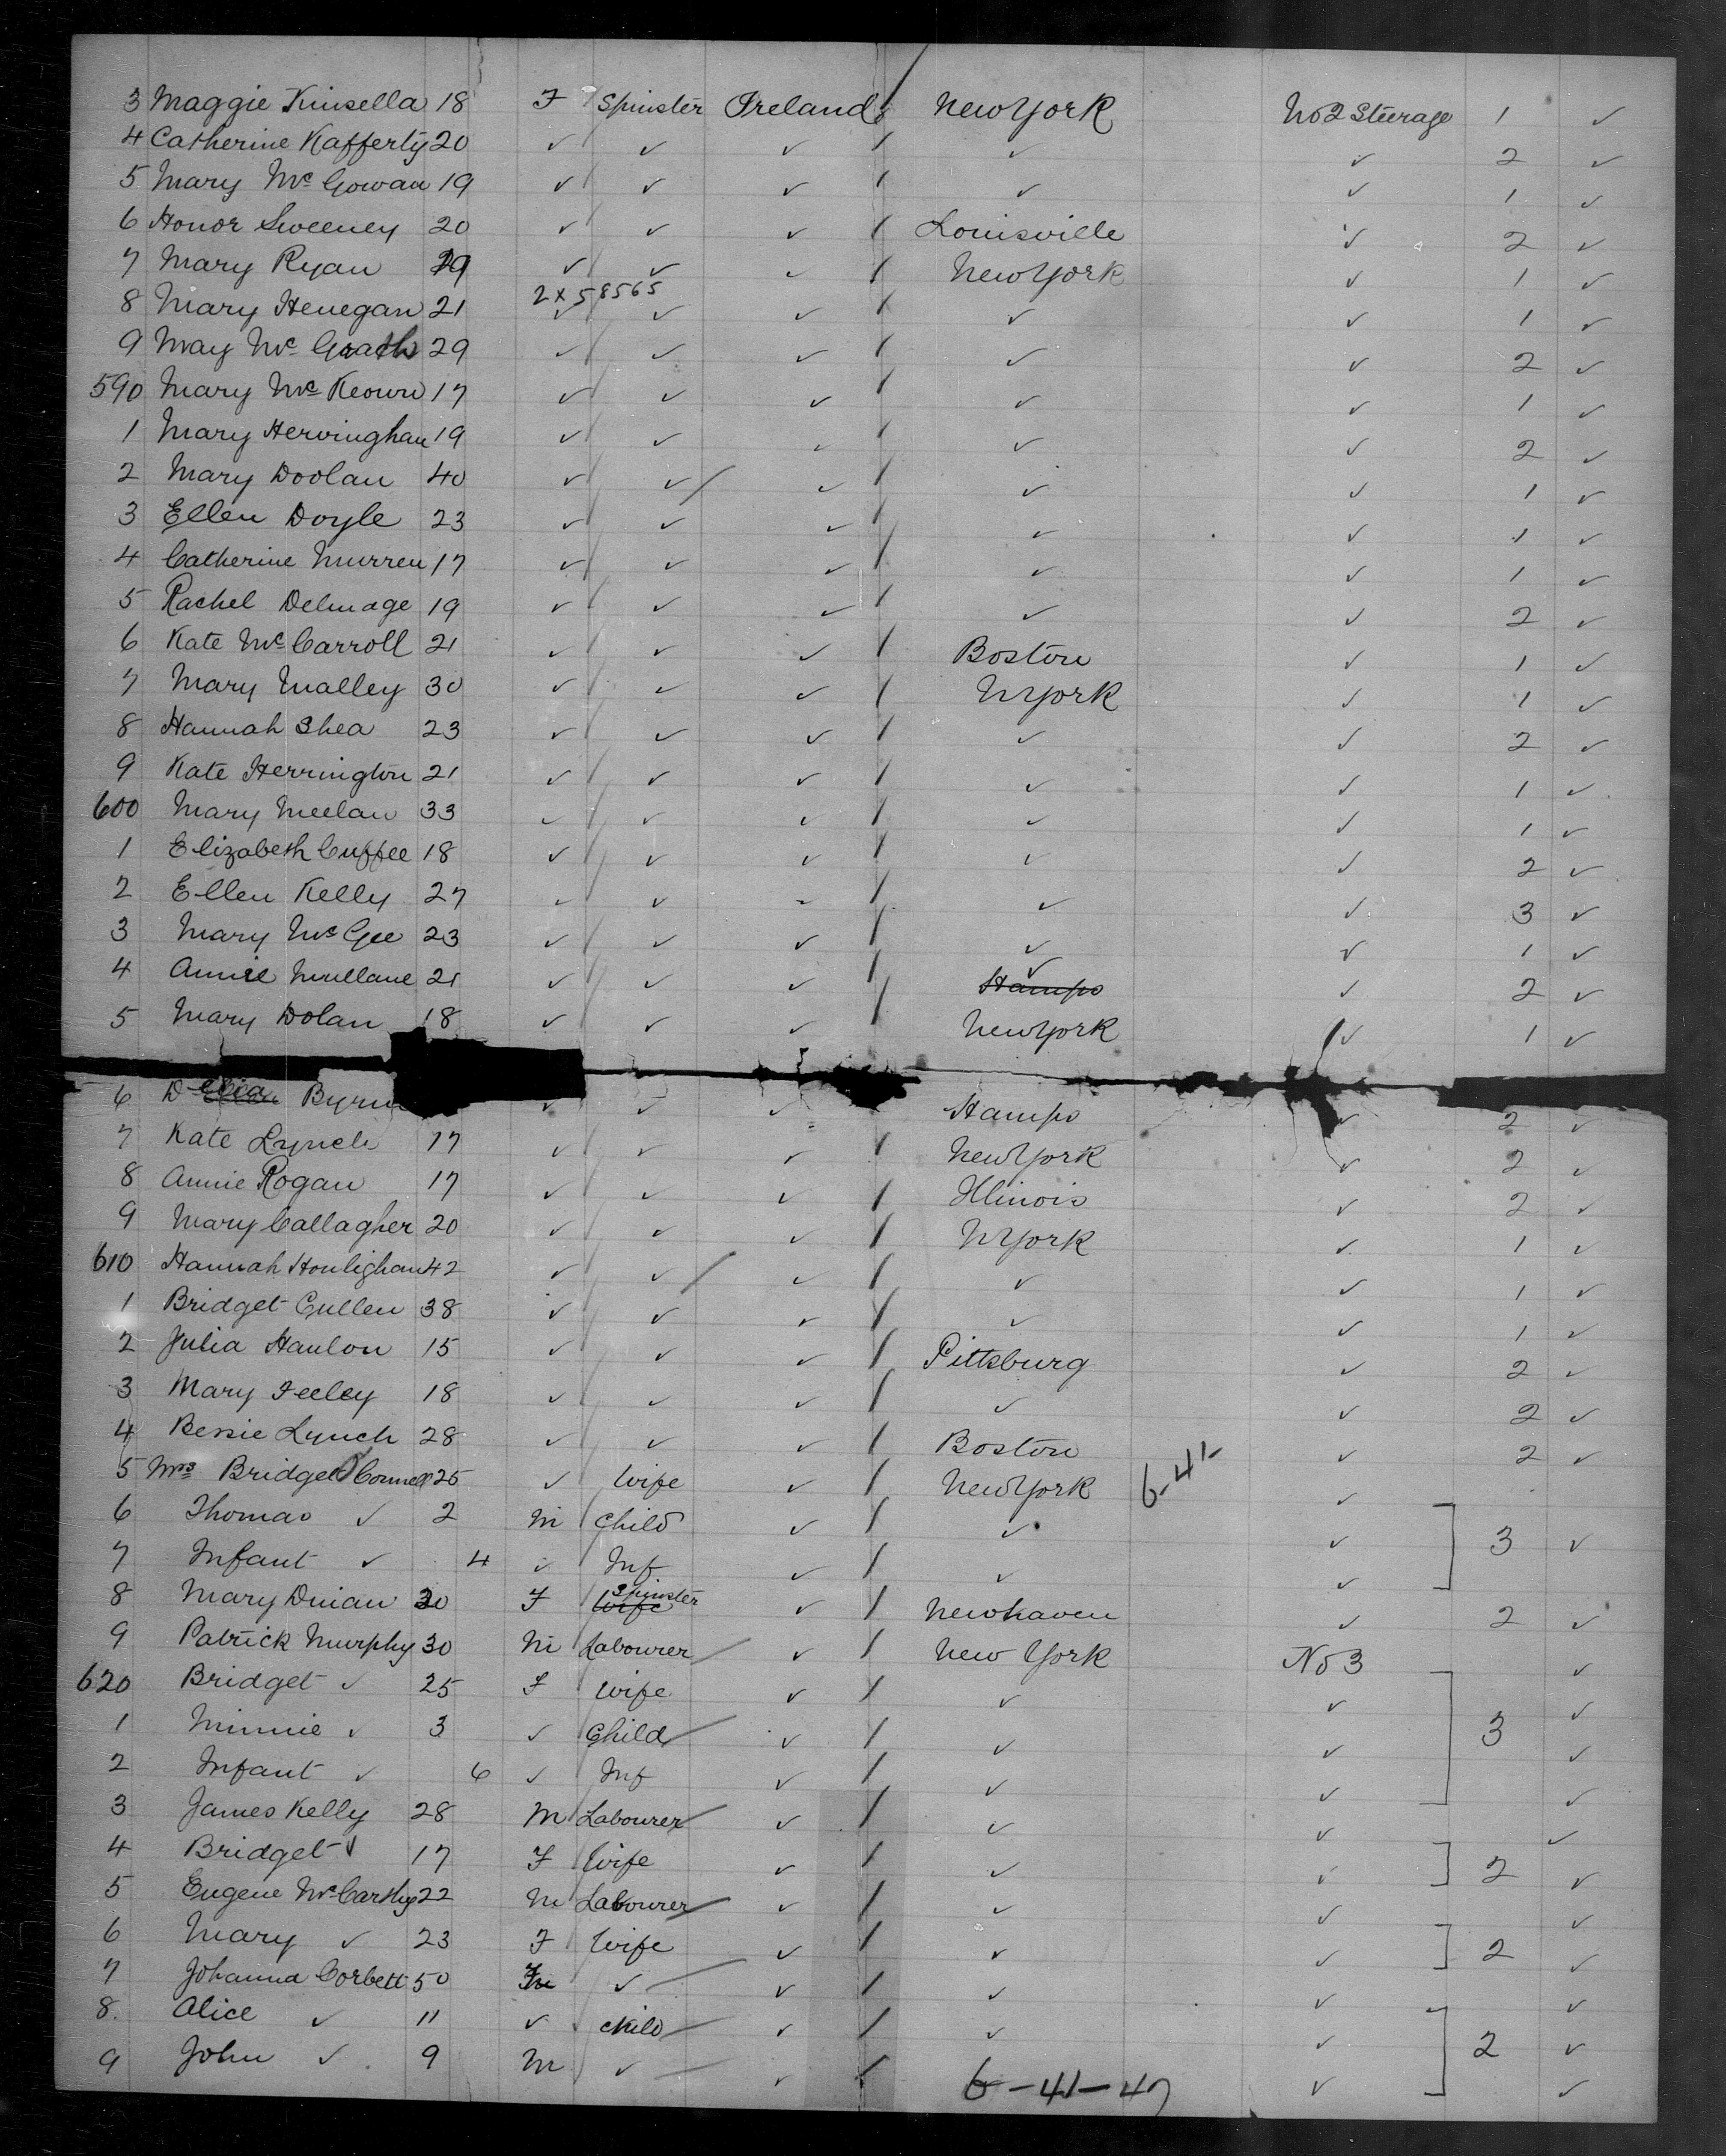 3 Maggie Kinsella 18 F Spinster Ireland New York No 2 Steerage 1 ✓
4 Catherine Rafferty 20 ✓ ✓ ✓ / ✓ ✓ 2 ✓
5 Mary Mc Gowan 19 ✓ ✓ ✓ / ✓ ✓ 1 ✓
6 Honor Sweeney 20 ✓ ✓ ✓ / Louisville ✓ 2 ✓
7 Mary Ryan 29 ✓ ✓ ✓ / New York ✓ 1 ✓
2 x 58565
8 Mary Henegan 21 ✓ ✓ ✓ / ✓ ✓ 1 ✓
9 May Mc Grath 29 ✓ ✓ ✓ / ✓ ✓ 2 ✓
590 Mary Mc Keown 17 ✓ ✓ ✓ / ✓ ✓ 1 ✓
1 Mary Hervinghan 19 ✓ ✓ ✓ / ✓ ✓ 2 ✓
2 Mary Doolan 40 ✓ ✓ / ✓ / ✓ ✓ 1 ✓
3 Ellen Doyle 23 ✓ ✓ ✓ / ✓ ✓ 1 ✓
4 Catherine Murren 17 ✓ ✓ ✓ / ✓ ✓ 1 ✓
5 Rachel Delmage 19 ✓ ✓ ✓ / ✓ ✓ 2 ✓
6 Kate Mc Carroll 21 ✓ ✓ ✓ / Boston ✓ 1 ✓
7 Mary Malley 30 ✓ ✓ ✓ / N York ✓ 1 ✓
8 Hannah Shea 23 ✓ ✓ ✓ / ✓ ✓ 2 ✓
9 Kate Herrington 21 ✓ ✓ ✓ / ✓ ✓ 1 ✓
600 Mary Meelan 33 ✓ ✓ ✓ / ✓ ✓ 1 ✓
1 Elizabeth Cuffee 18 ✓ ✓ ✓ / ✓ ✓ 2 ✓
2 Ellen Kelly 27 ✓ ✓ ✓ / ✓ ✓ 3 ✓
3 Mary Mc Gee 23 ✓ ✓ ✓ / ✓ ✓ 1 ✓
4 Annie Mullane 21 ✓ ✓ ✓ / ✓ Hampo ✓ 2 ✓
5 Mary Dolan 18 ✓ ✓ ✓ / New York ✓ 1 ✓
6 Delia Byrn ✓ ✓ ✓ Hampo ✓ 2 ✓
7 Kate Lynch 17 ✓ ✓ ✓ / New York ✓ 2 ✓
8 Annie Rogan 17 ✓ ✓ ✓ / Illinois ✓ 2 ✓
9 Mary Callagher 20 ✓ ✓ ✓ / N York ✓ 1 ✓
610 Hannah Houlighan 42 ✓ ✓ / ✓ / ✓ ✓ 1 ✓
1 Bridget Cullen 38 ✓ ✓ ✓ / ✓ ✓ 1 ✓
2 Julia Hanlon 15 ✓ ✓ ✓ / Pittsburg ✓ 2 ✓
3 Mary Feeley 18 ✓ ✓ ✓ / ✓ ✓ 2 ✓
4 Bessie Lynch 28 ✓ ✓ ✓ / Boston ✓ 2 ✓
5 Mrs Bridget O'Connell 25 ✓ Wife ✓ / New York 6-41- ✓
6 Thomas ✓ 2 M Child ✓ / ✓ ✓ 3 ✓
7 Infant ✓ 4 ✓ Inf ✓ / ✓ ✓
8 Mary Dinan 30 F Wife Spinster ✓ / Newhaven ✓ 2 ✓
9 Patrick Murphy 30 M Labourer ✓ / New York No 3 ✓
620 Bridget ✓ 25 F Wife ✓ / ✓ ✓ ✓
1 Minnie ✓ 3 ✓ Child ✓ / ✓ ✓ 3 ✓
2 Infant ✓ 6 ✓ Inf ✓ / ✓ ✓ ✓
3 James Kelly 28 M Labourer ✓ / ✓ ✓ ✓
4 Bridget ✓ 17 F Wife ✓ / ✓ ✓ 2 ✓
5 Eugene Mc Carthy 22 M Labourer ✓ / ✓ ✓ ✓
6 Mary ✓ 23 F Wife ✓ / ✓ ✓ 2 ✓
7 Johanna Corbett 50 F ✓ ✓ / ✓ ✓ ✓
8. Alice ✓ 11 ✓ child ✓ / ✓ ✓ 2 ✓
9 John ✓ 9 M ✓ ✓ / ✓ ✓
6-41-47